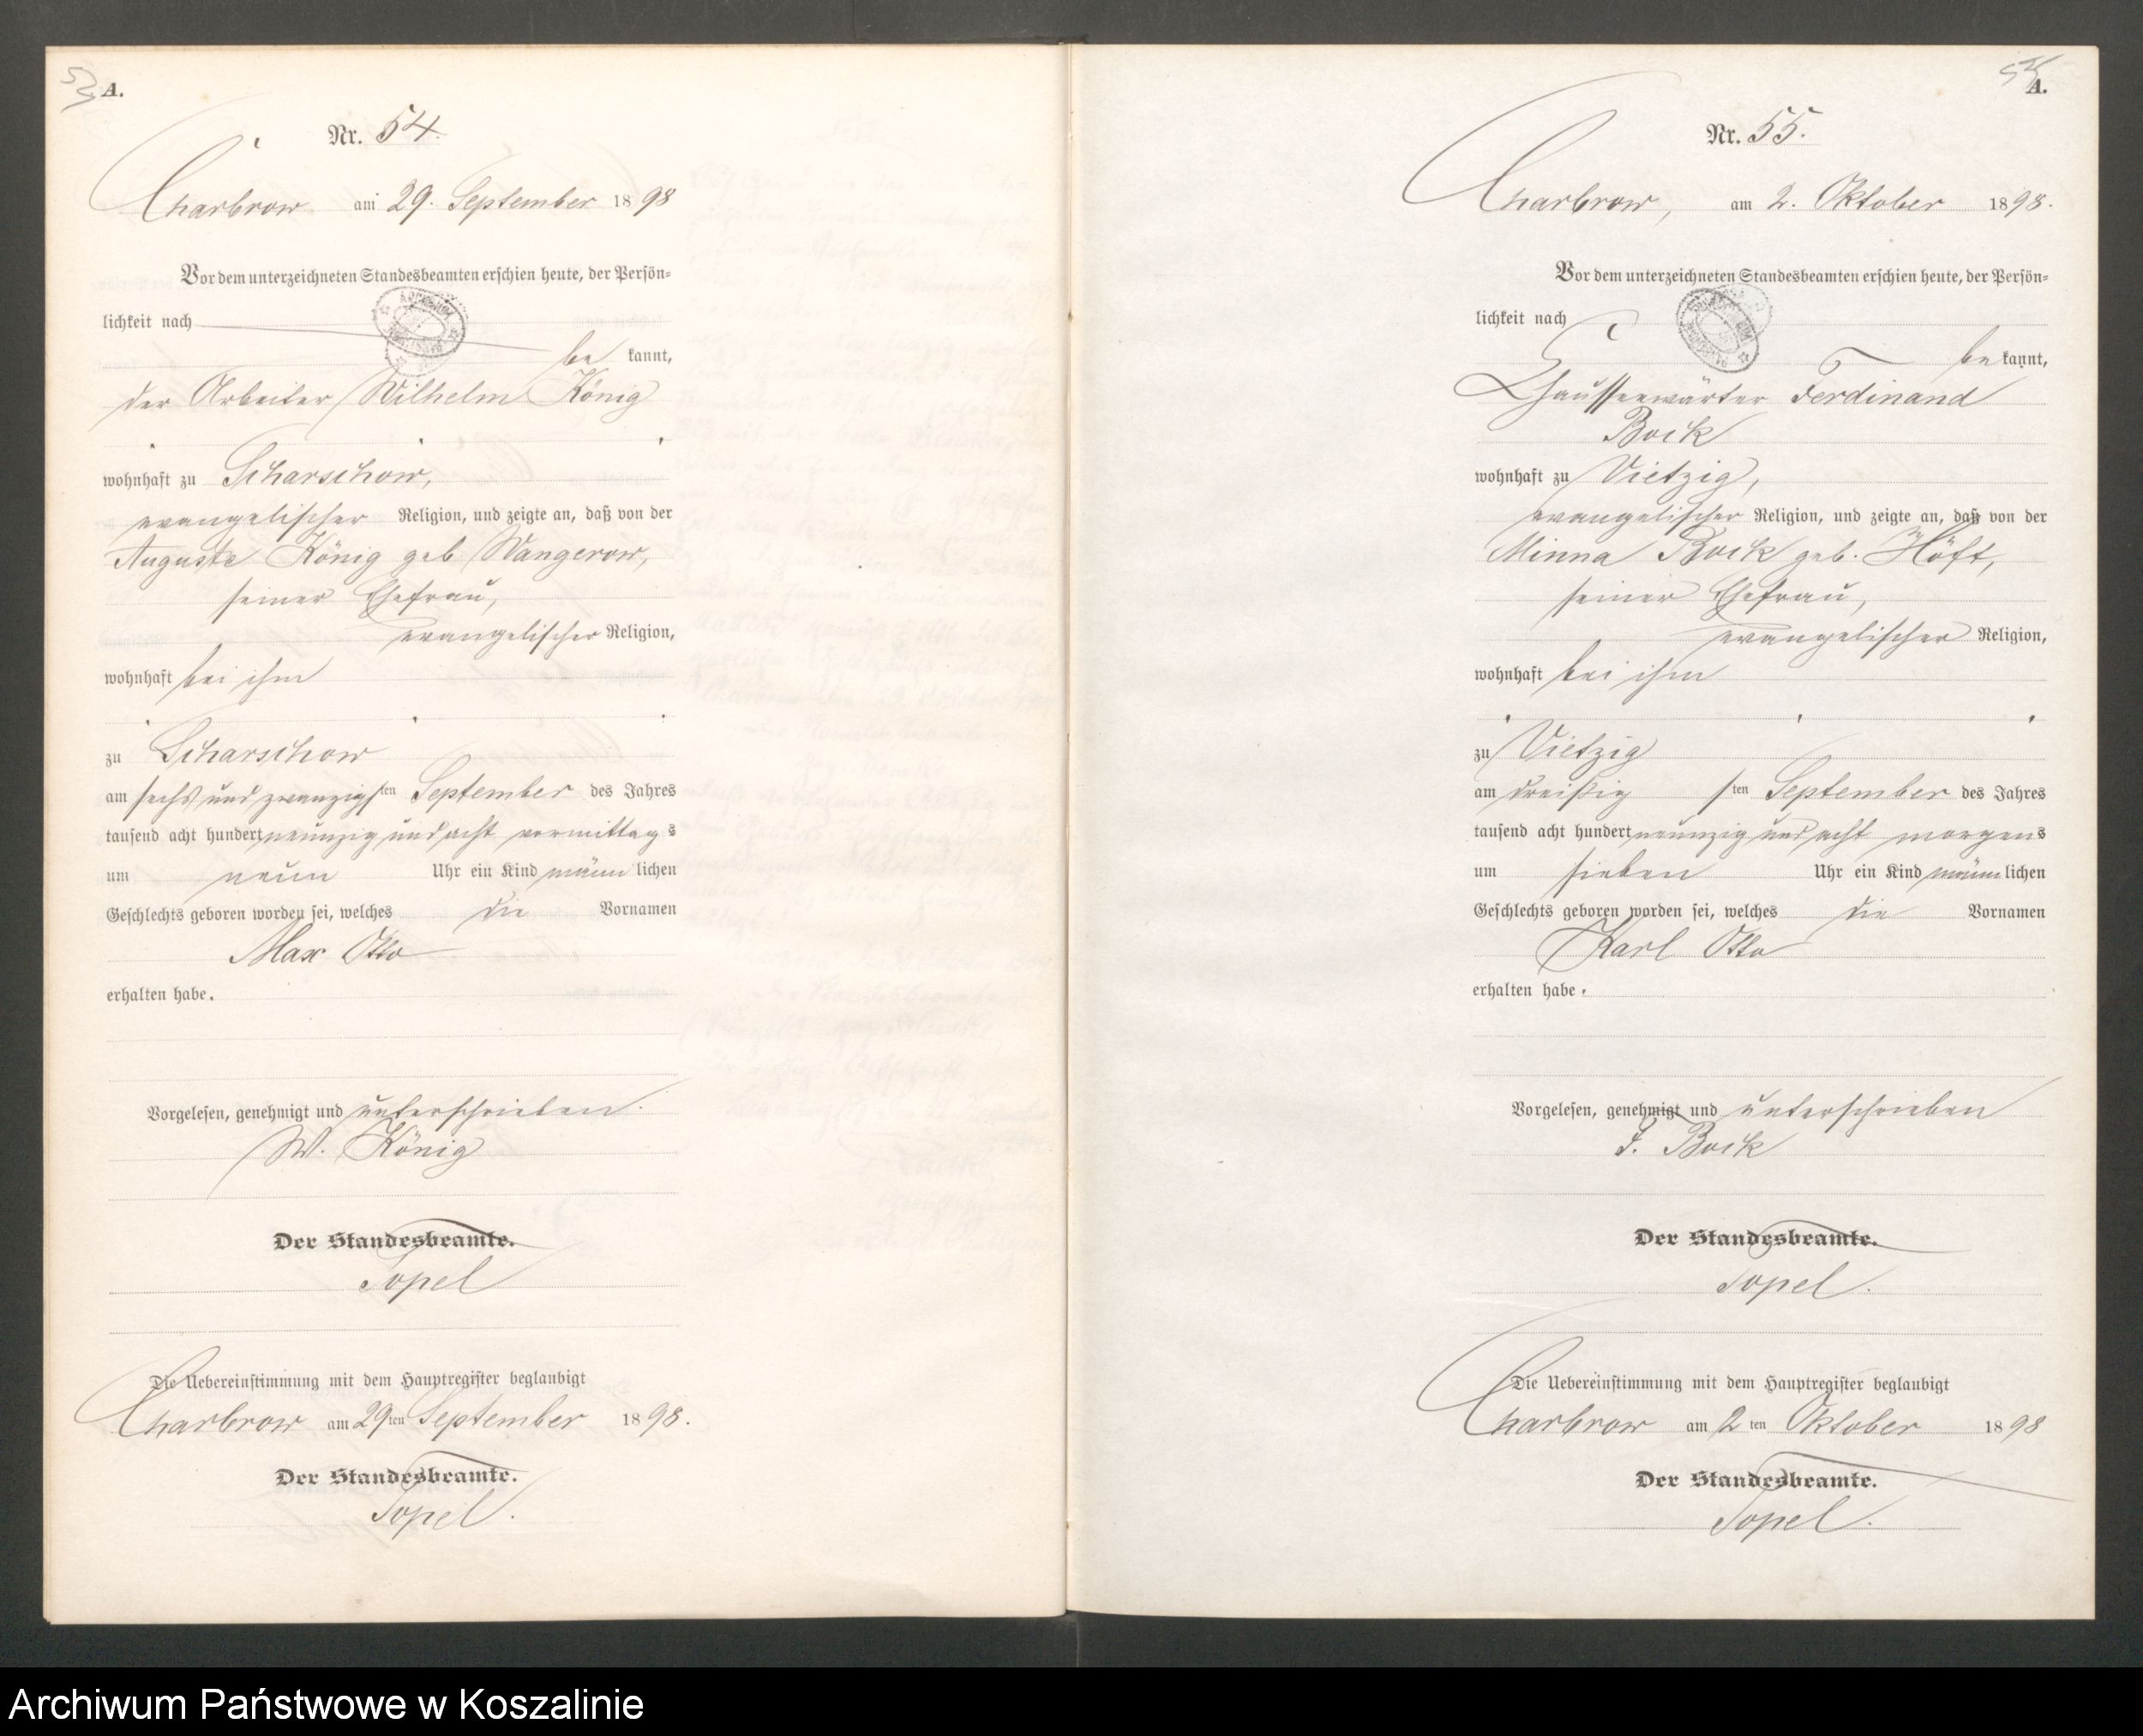 A.
Nr. 54.
Charbrow am 29. September 1898
Vor dem unterzeichneten Standesbeamten erschien heute, der Persön-
lichkeit nach
be kannt,
der Arbeiter Wilhelm König
wohnhaft zu Scharschow,
evangelischer Religion, und zeigte an, daß von der
Auguste König geb Wangerow,
seiner Ehefrau,
evangelischer Religion,
wohnhaft bei ihm
zu Scharschow
am sechs und zwanzigsten September des Jahres
tausend acht hundert neunzig und acht vormittags
um neun Uhr ein Kind männlichen
Geschlechts geboren worden sei, welches die Vornamen
Max Otto
erhalten habe.
Vorgelesen, genehmigt und unterschrieben.
W. König
Der Standesbeamte.
Topel
Die Uebereinstimmung mit dem Hauptregister beglaubigt
Charbrow am 29ten September 1898.
Der Standesbeamte.
Topel.
A.
Nr. 55.
Charbrow, am 2. Oktober 1898.
Vor dem unterzeichneten Standesbeamten erschien heute, der Persön-
lichkeit nach
be kannt,
Chausseewärter Ferdinand
Bock
wohnhaft zu Vietzig,
evangelischer Religion, und zeigte an, daß von der
Minna Bock geb. Höft,
seiner Ehefrau,
evangelischer Religion,
wohnhaft bei ihm
zu Vietzig
am dreißigsten September des Jahres
tausend acht hundert neunzig und acht morgens
um sieben Uhr ein Kind männlichen
Geschlechts geboren worden sei, welches die Vornamen
Karl Otto
erhalten habe.
Vorgelesen, genehmigt und unterschrieben
F. Bock
Der Standesbeamte.
Topel.
Die Uebereinstimmung mit dem Hauptregister beglaubigt
Charbrow am 2ten Oktober 1898
Der Standesbeamte.
Topel.
Archiwum Państwowe w Koszalinie